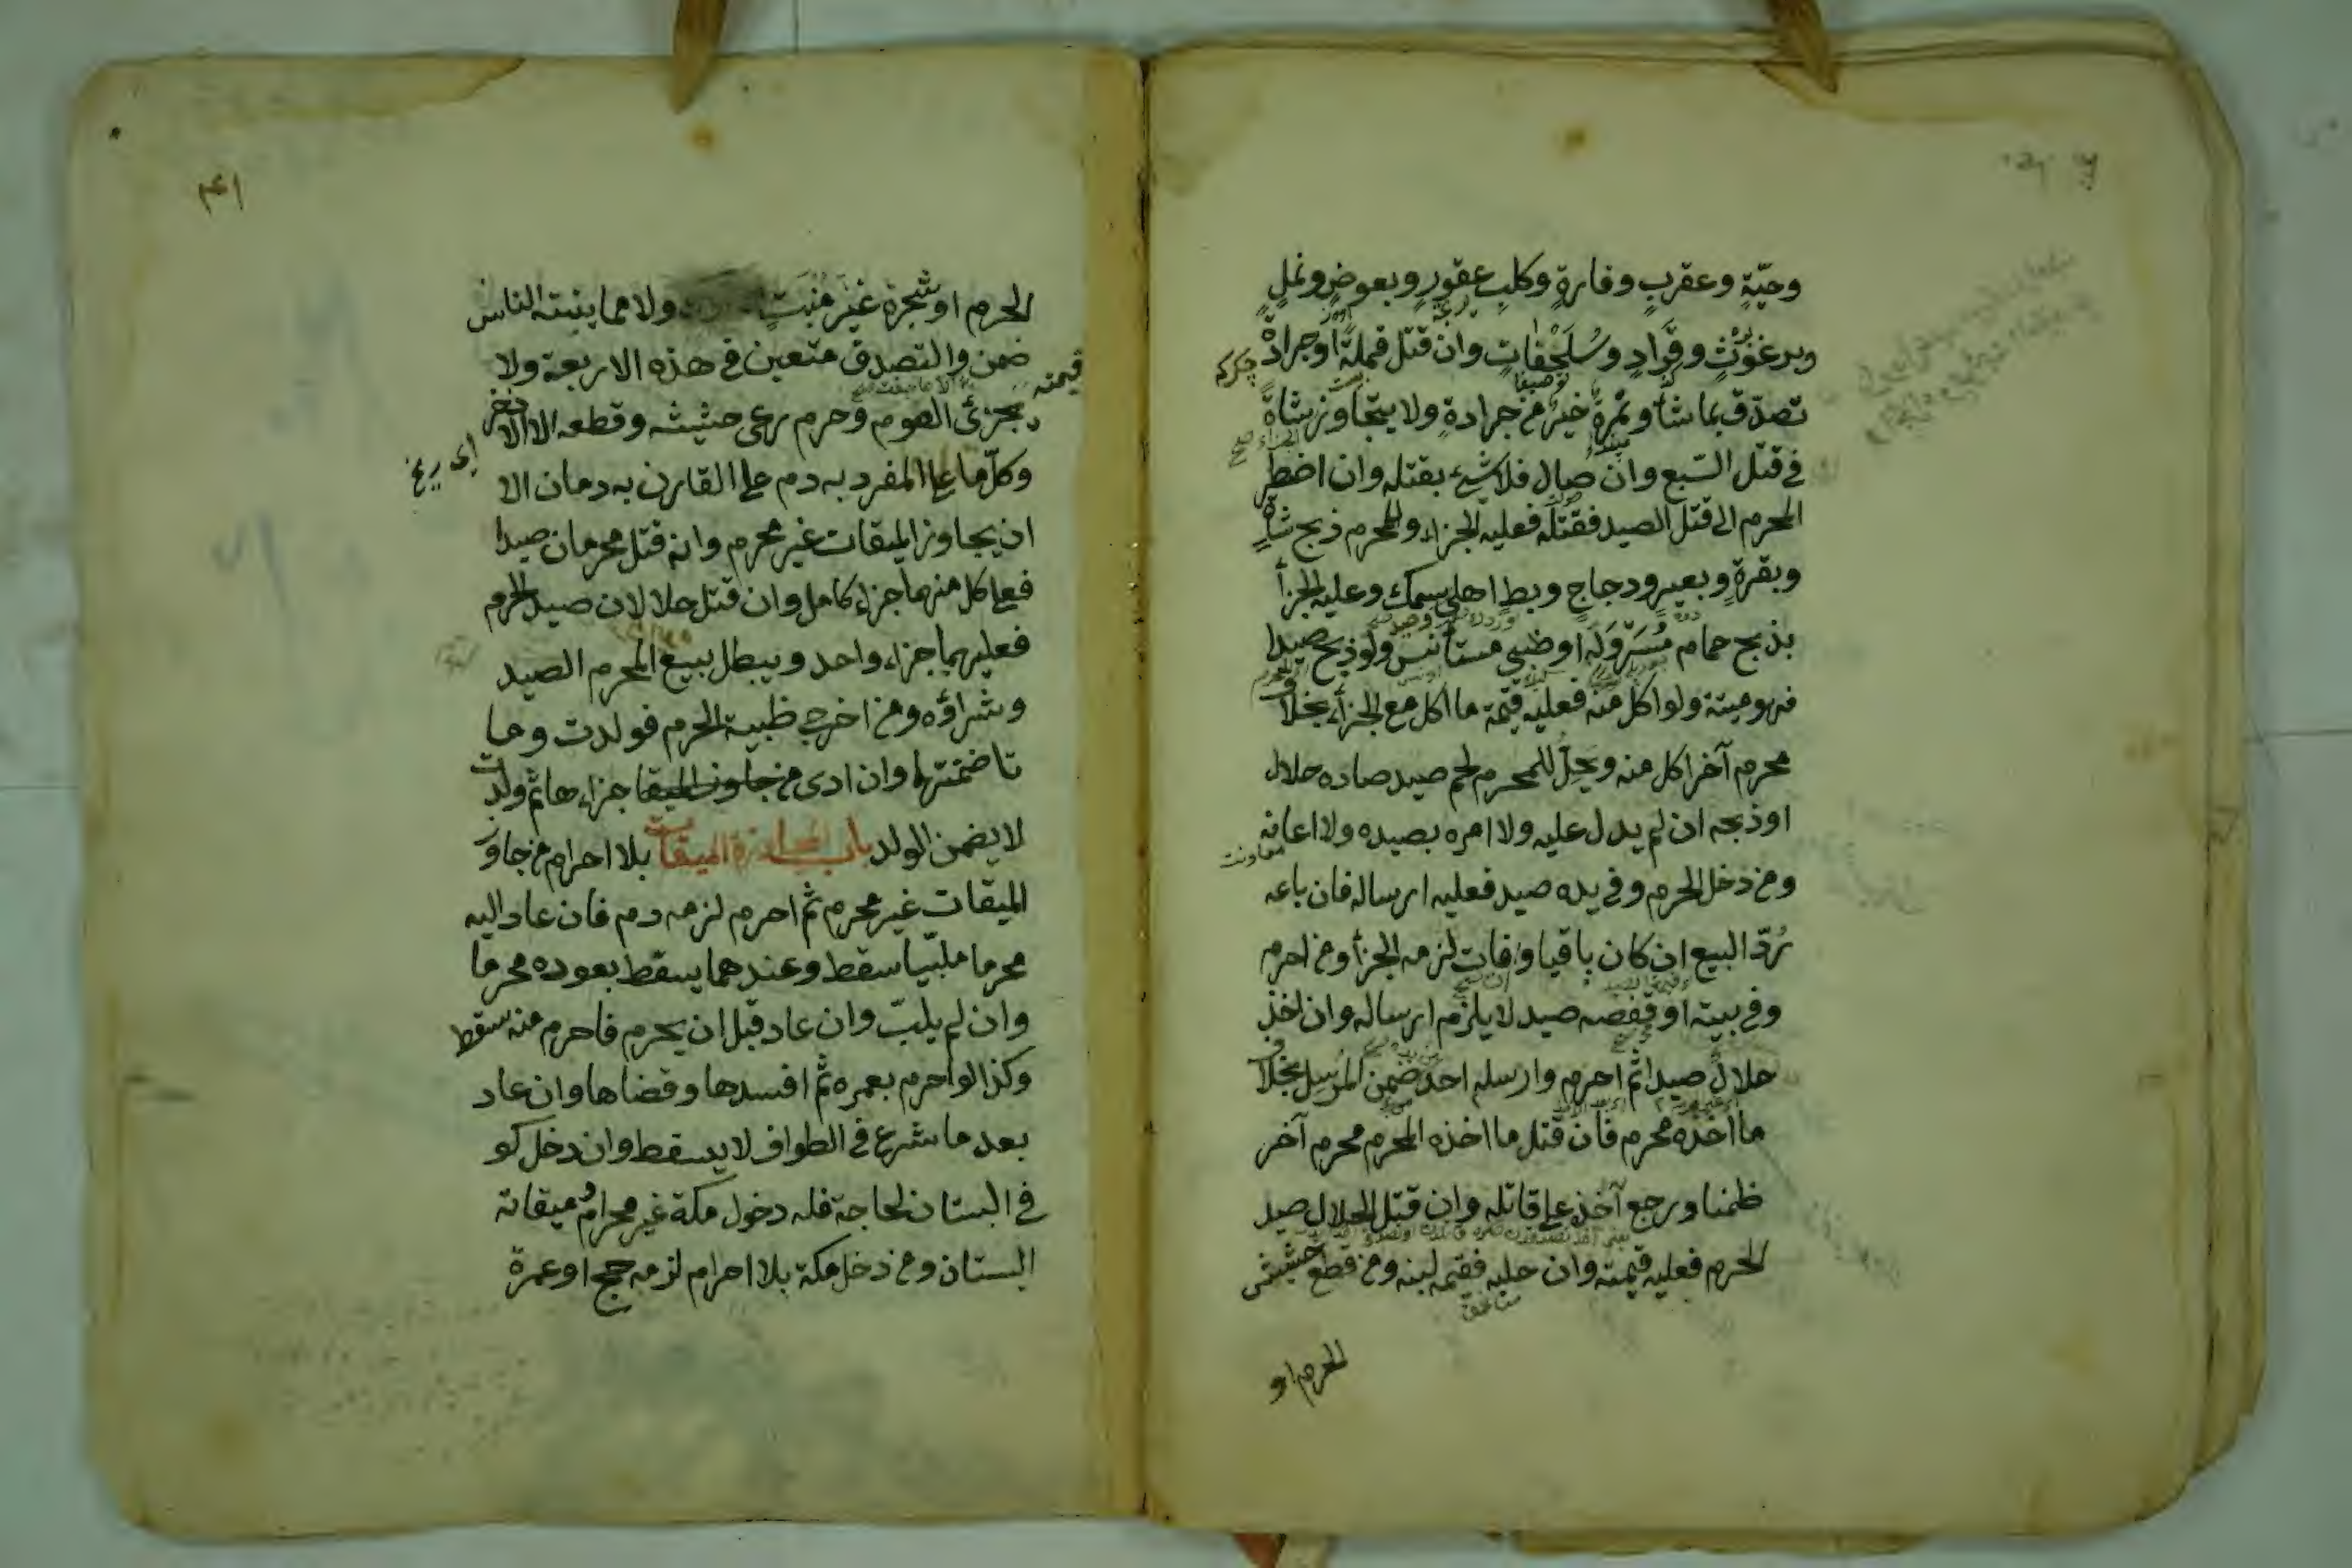 وحيّةٍ وعقربٍ وفارةٍ وكلبٍ عقورٍ وبعوضٍ ونملٍ
وبرغوثٍ وقرادٍ وسُلَحْفاتٍ وان قتل قملةً اوجرادةً
تصدّق بما شأ وتمرةٌ خيرٌ من جرادةٍ ولا يتجاوز شاةً
في قتل السّبع وان صال فلا شئ بقتله وان اضطر
المحرم الى قتل الصيد فقتله فعليه الجزاء وللمحرم ذبح شاةٍ
وبقرةٍ وبعيرٍ ودجاجٍ وبطٍ اهلي سمك وعليه الجزأ
بذبح حمام مُسَرْوَلَه اوظبي مستأنس ولو ذبح صيدا
فهو ميتة ولو اكل منه فعليه قيمة ما اكل مع الجزأ بخلاف
محرم آخر اكل منه ويحلّ للمحرم لحم صيد صاده حلال
اوذبحه ان لم يدل عليه ولا امره بصيده ولا اعانه
معاونت
ومن دخل الحرم وفي يده صيد فعليه ارساله فان باعه
رُدّ البيع ان كان باقيا وافات لزمه الجزأ ومن احرم
وفي بيته او قفصه صيد لا يلزم ارساله وان اخذ
حلالٌ صيدا ثم احرم وارسله احد ضمن المرسل بخلاف
ما اخذه محرم فان قتل ما اخذه المحرم محرم آخر
ظمنا ورجع آخذ على قاتله وان قتل الحلال صيد
الحرم فعليه قيمته وان حلبه فقيمه لبنه ومن قطع حشيش
الحرم او
۴۱
الحرم او شجرة غير منبَت ولا مما ينبته الناس
ضمن والتصدق متعين في هذه الاربعة ولا
قيمته
يجزئ الصوم وحرم رعى حشيشه وقطعه الا الاذخر
وكلّ ما على المفرد به دم على القارن به دمان الا
ان يجاوز الميقات غير محرم وانه قتل محرمان صيدا
فعلى كل منهما جزاء كامل وان قتل حلالان صيد الحرم
فعليهما جزاء واحد ويبطل بيع المحرم الصيد
وشراؤه ومن اخرج ظبية الحرم فولدت وما
تا ضمنتها وان ادى من جاوز الميقا جزاءها ثم ولدت
لا يضمن الولد باب المجاوزة الميقات بلا احرام من جاوز
الميقات غير محرم ثم احرم لزمه دم فان عاد اليه
محرما ملبّيا سقط وعندهما يسقط بعوده محرما
وان لم يلبّ وان عاد قبل ان يحرم فاحرم منه سقط
وكذا لو احرم بعمره ثم افسدها وقضاها وان عاد
بعد ما شرع في الطواف لا يسقط وان دخل كو
في البستان لحاجة فله دخول مكة غير محرام وميقاته
البستان ومن دخل مكة بلا احرام لزمه حج او عمرة